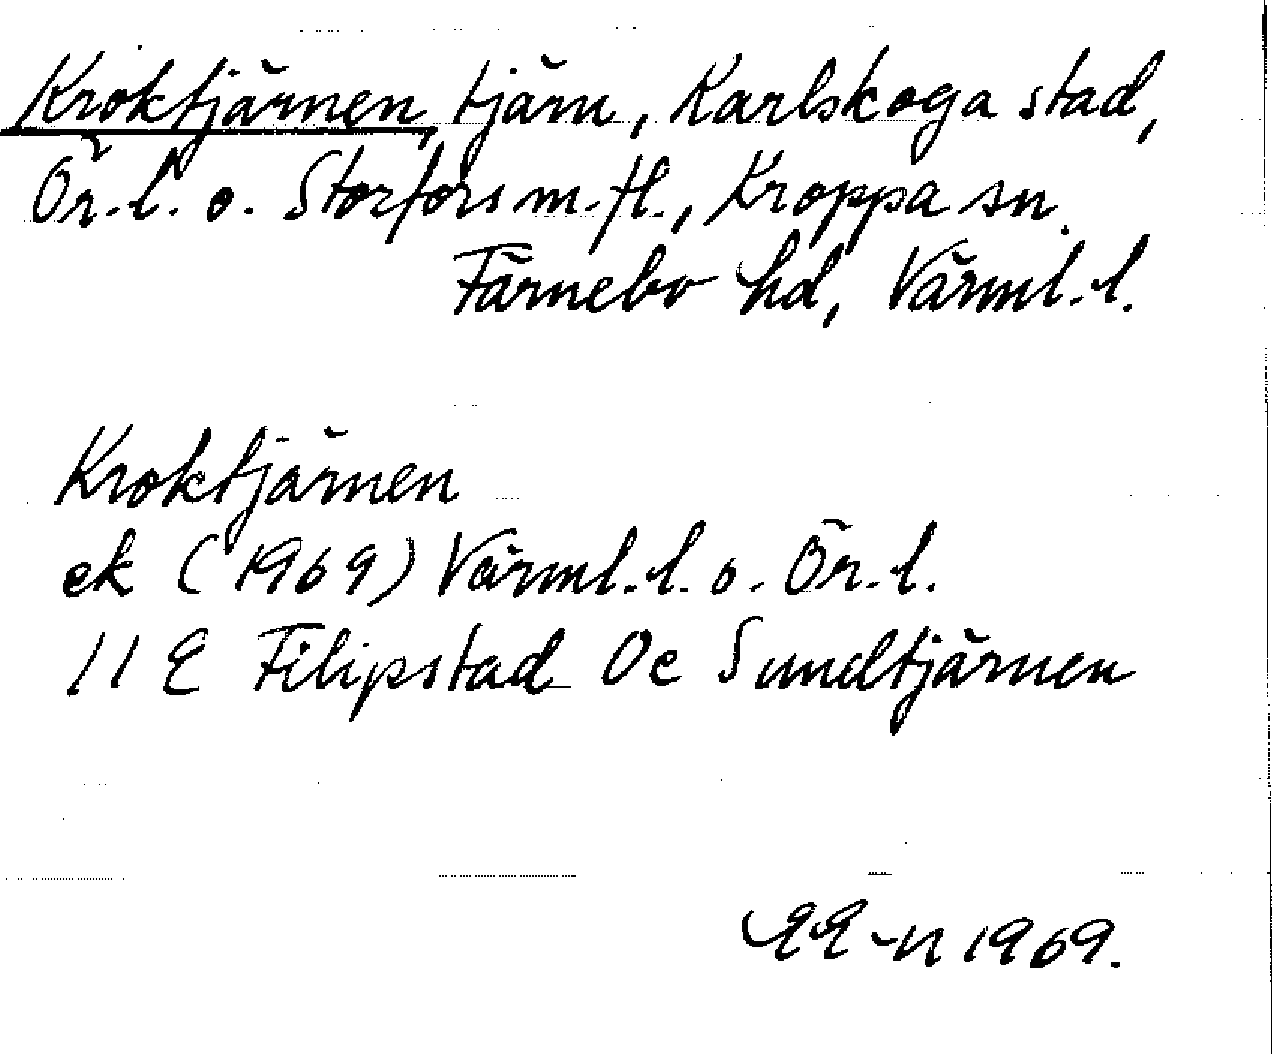 Kroktjärnen, tjärn, Karlskoga stad,
Ör.l. o. Storfors m.fl., Kroppa sn.
Färnebo hd, Värml.l.
Kroktjärnen
ek (1969) Värml.l. o. Ör.l.
11 E Filipstad 0c Sundtjärnen
1969.